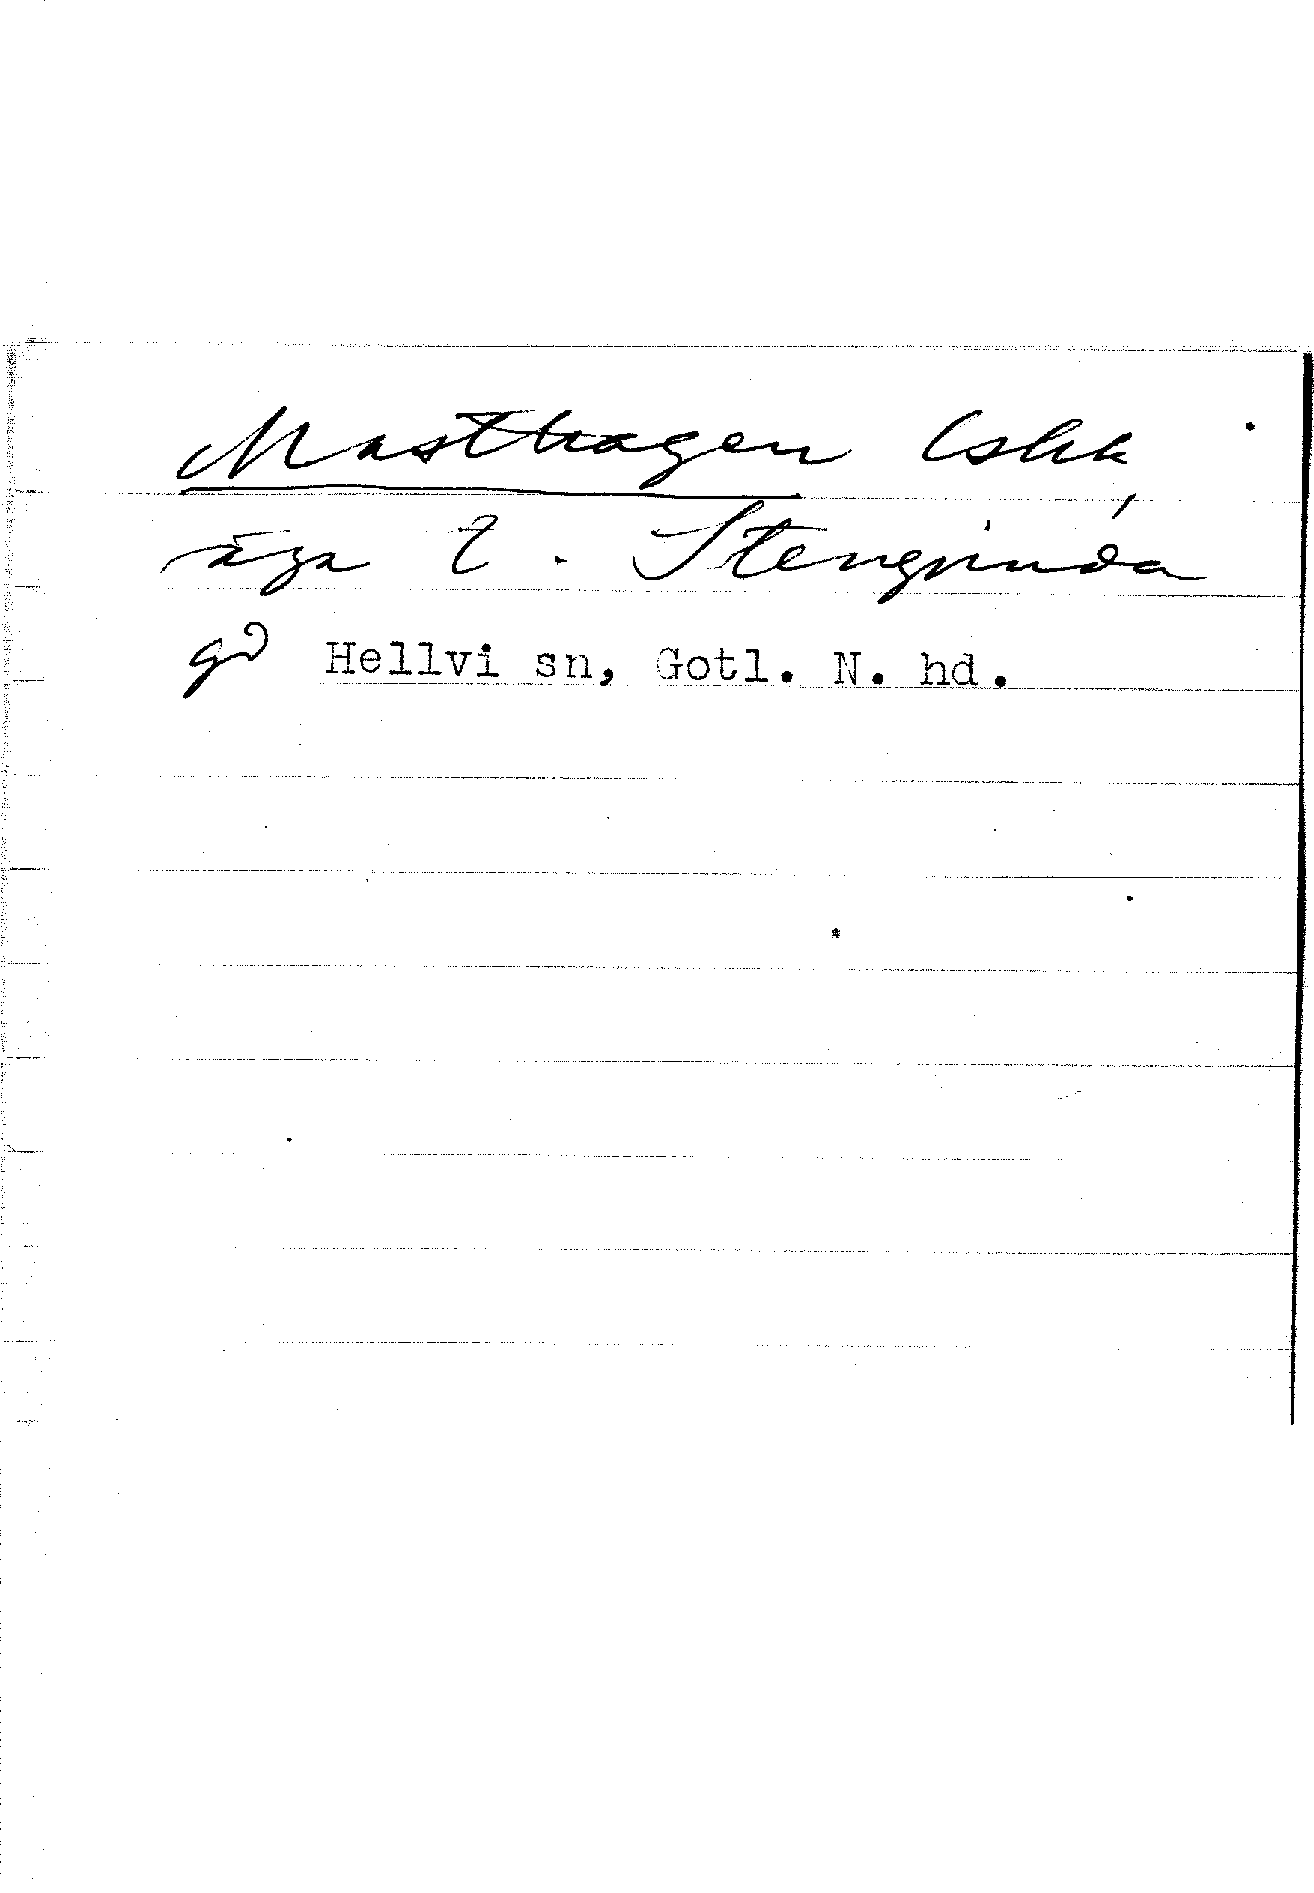 Masthagen lshk,
äga t. Stengrinda
gd Hellvi sn, Gotl. N. hd.